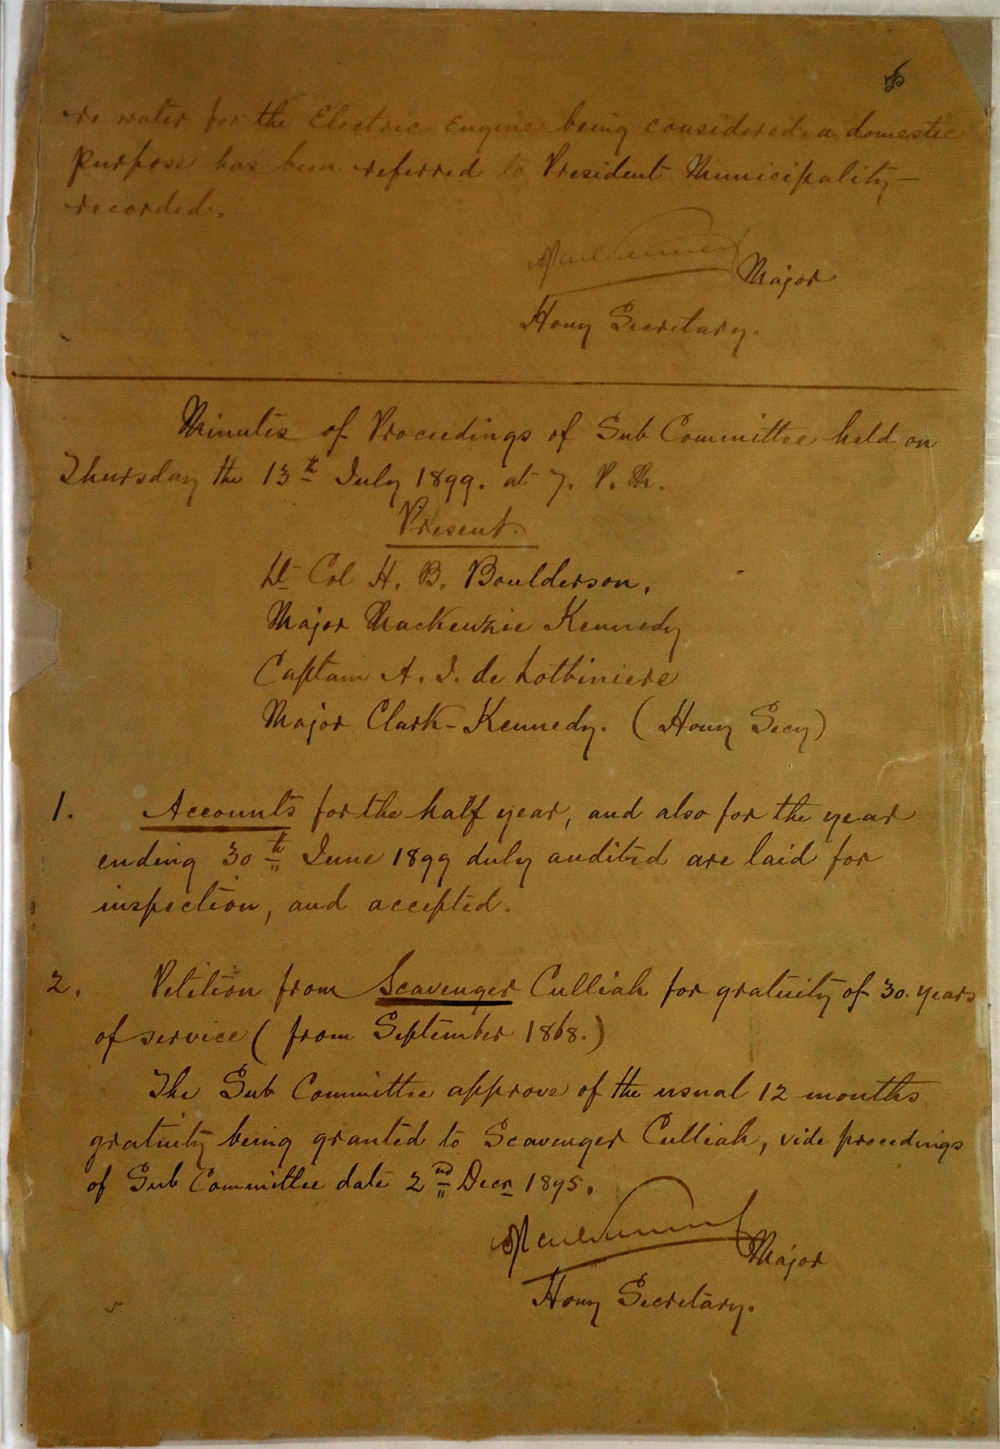 re water for the Electric Engine being considered a domestic
purpose has been referred to President Municipality—
recorded.
Major
Hony Secretary.
Minutes of Proceedings of Sub Committee held on
Thursday the 13th July 1899. at 7. P. M.
Present.
Lt Col H. B. Boulderson,
Major Mackenzie Kennedy
Captain A. J. de Lotbiniere
Major Clark-Kennedy. (Hony Secy)
1. Accounts for the half year, and also for the year
ending 30th June 1899 duly audited are laid for
inspection, and accepted.
2. Petition from Scavenger Culliah for gratuity of 30. years
of service (from September 1868.)
The Sub Committee approve of the usual 12 months
gratuity being granted to Scavenger Culliah, vide procedings
of Sub Committee date 2nd Decr 1895.
Major
Hony Secretary.